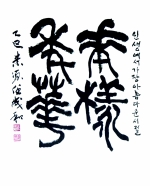 인생에서 가장 아름다운 시절
花樣
年華
乙巳